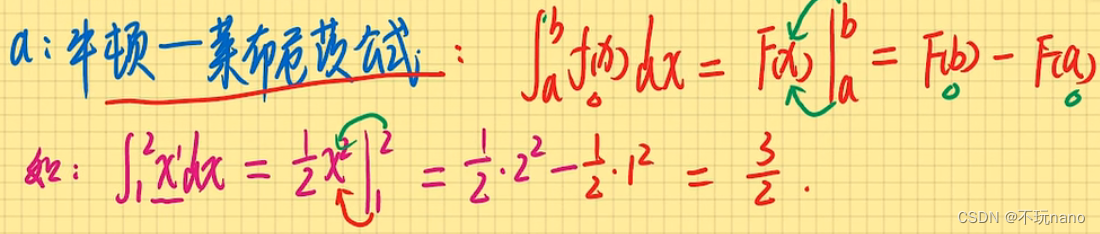 a: 牛顿—莱布尼茨公式: ∫_a^b f(x) dx = F(x)|_a^b = F(b) - F(a)
如: ∫_1^2 x^1 dx = 1/2 x^2 |_1^2 = 1/2 · 2^2 - 1/2 · 1^2 = 3/2 .
CSDN @不玩nano